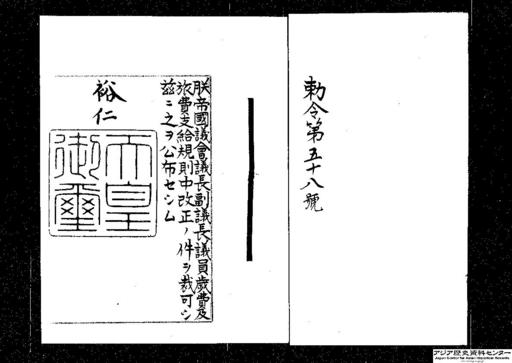 勅令第五十八號
朕帝國議會議長副議長議員歳費及
旅費支給規則中改正ノ件ヲ裁可シ
玆ニ之ヲ公布セシム
裕仁
天皇
御璽
アジア歴史資料センター
Japan Center for Asian Historical Records